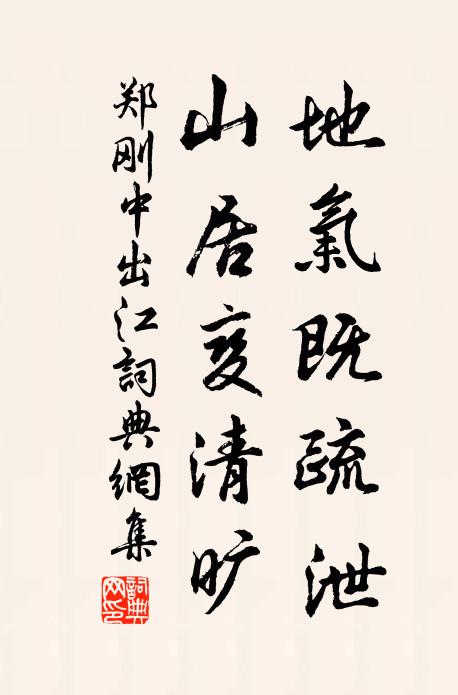 地氣既疏泄
山居变清旷
郑刚中出江詞典網集
詞典网印